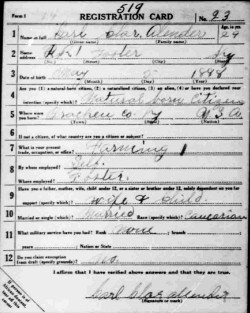 519
Form 1 REGISTRATION CARD No. 23
1 Name in full Karl Olar Alender Age, in yrs. 29
(Given name) (Family name)
2 Home address R#1 Foster Ky
(No.) (Street) (City) (State)
3 Date of birth May 1888
(Month) (Day) (Year)
4 Are you (1) a natural-born citizen, (2) a naturalized citizen, (3) an alien, (4) or have you declared your intention (specify which)? Natural born Citizen
5 Where were you born? Bracken Co. Ky U.S.A.
(Town) (State) (Nation)
6 If not a citizen, of what country are you a citizen or subject?
7 What is your present trade, occupation, or office? Farming 1
8 By whom employed? Self
Where employed? Foster
9 Have you a father, mother, wife, child under 12, or a sister or brother under 12, solely dependent on you for support (specify which)? Wife & Child
10 Married or single (which)? Married Race (specify which)? Caucasian
11 What military service have you had? Rank None branch
years Nation or State
12 Do you claim exemption from draft (specify grounds)? No.
I affirm that I have verified above answers and that they are true.
Karl Olar Allender
(Signature or mark)